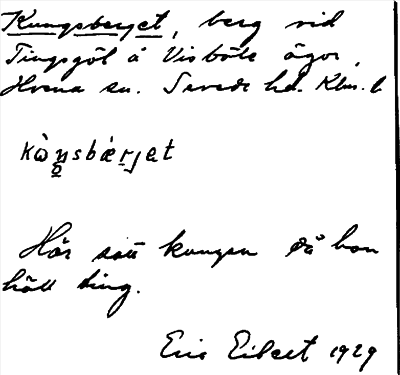 Kungsberget, berg vid
Tingsgöl å Visböle ägor,
Hvena sn. Sevede hd. Klm. l
kòŋsbærjet
Här satt kungen då han
höll ting.
Eric Eilert 1929